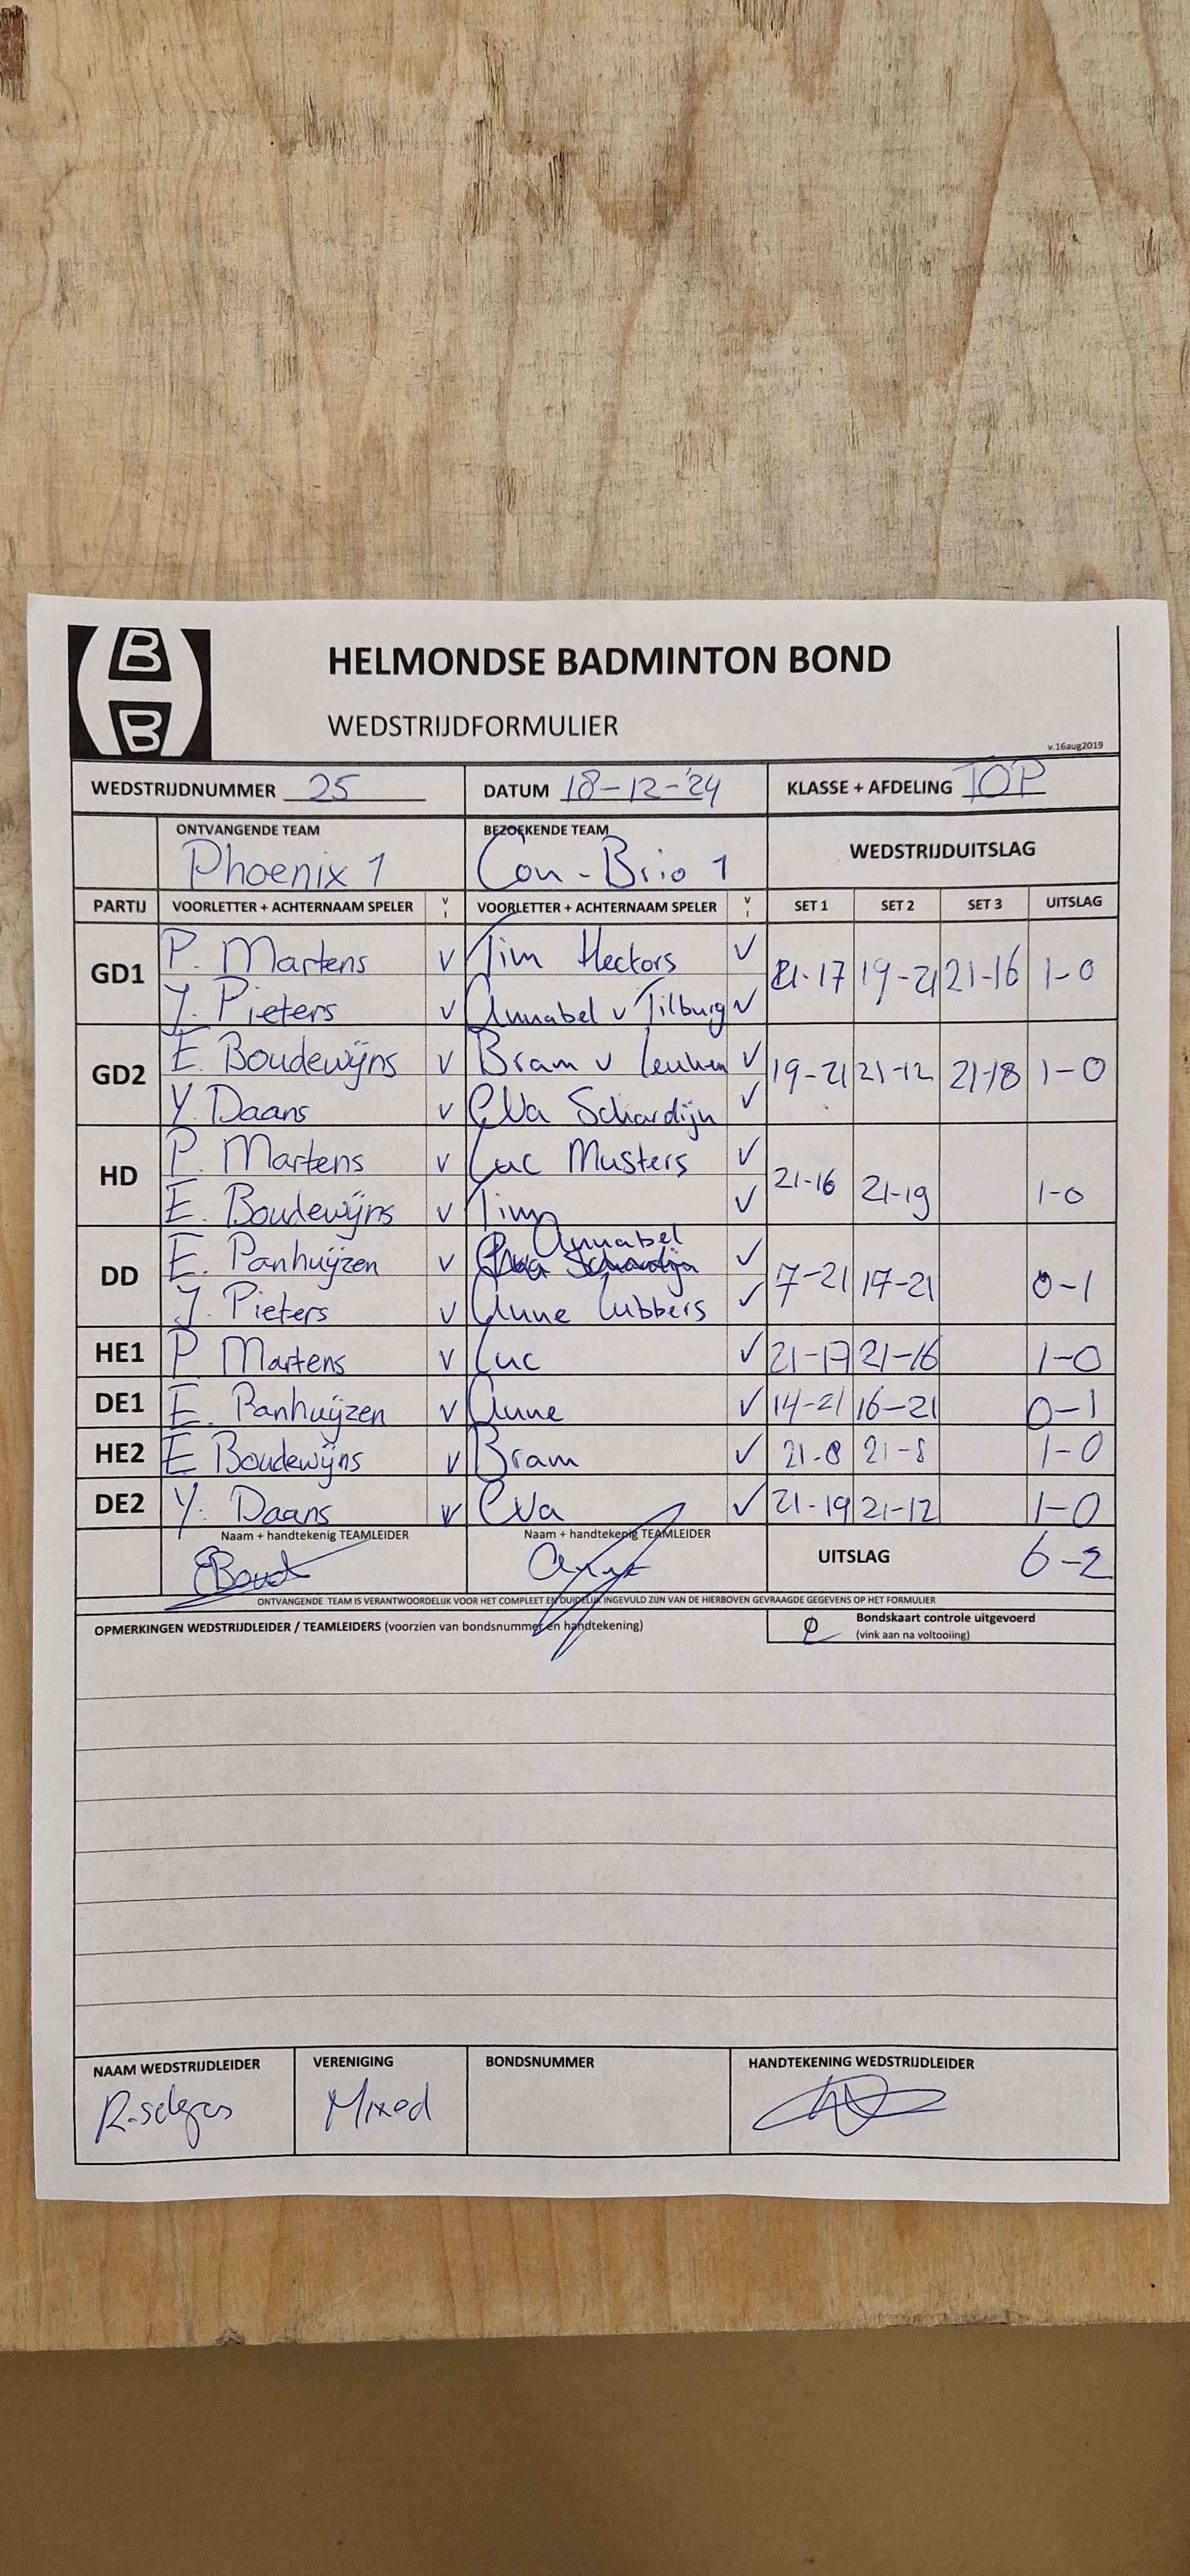 B
B
HELMONDSE BADMINTON BOND
WEDSTRIJDFORMULIER
v.16aug2019
WEDSTRIJDNUMMER 25 DATUM 18-12-'24 KLASSE + AFDELING TOP
ONTVANGENDE TEAM BEZOEKENDE TEAM WEDSTRIJDUITSLAG
Phoenix 1 Con-Brio 1
PARTIJ VOORLETTER + ACHTERNAAM SPELER V VOORLETTER + ACHTERNAAM SPELER V SET 1 SET 2 SET 3 UITSLAG
GD1 P. Martens V Tim Hectors V 21-17 19-21 21-16 1-0
J. Pieters V Annabel v Tilburg V
GD2 E. Boudewijns V Bram v Leuken V 19-21 21-12 21-18 1-0
Y. Daans V Eva Schardijn V
HD P. Martens V Luc Musters V 21-16 21-19 1-0
E. Boudewijns V Tim V
DD E. Panhuijzen V Annabel V 7-21 17-21 0-1
J. Pieters V Anne Lubbers V
HE1 P Martens V Luc V 21-17 21-16 1-0
DE1 E. Panhuijzen V Anne V 14-21 16-21 0-1
HE2 E Boudewijns V Bram V 21-8 21-8 1-0
DE2 Y. Daans V Eva V 21-19 21-12 1-0
Naam + handtekenig TEAMLEIDER Naam + handtekenig TEAMLEIDER UITSLAG 6-2
ONTVANGENDE TEAM IS VERANTWOORDELIJK VOOR HET COMPLEET EN DUIDELIJK INGEVULD ZIJN VAN DE HIERBOVEN GEVRAAGDE GEGEVENS OP HET FORMULIER
OPMERKINGEN WEDSTRIJDLEIDER / TEAMLEIDERS (voorzien van bondsnummer en handtekening) Bondskaart controle uitgevoerd
(vink aan na voltooiing)
NAAM WEDSTRIJDLEIDER VERENIGING BONDSNUMMER HANDTEKENING WEDSTRIJDLEIDER
Mixed